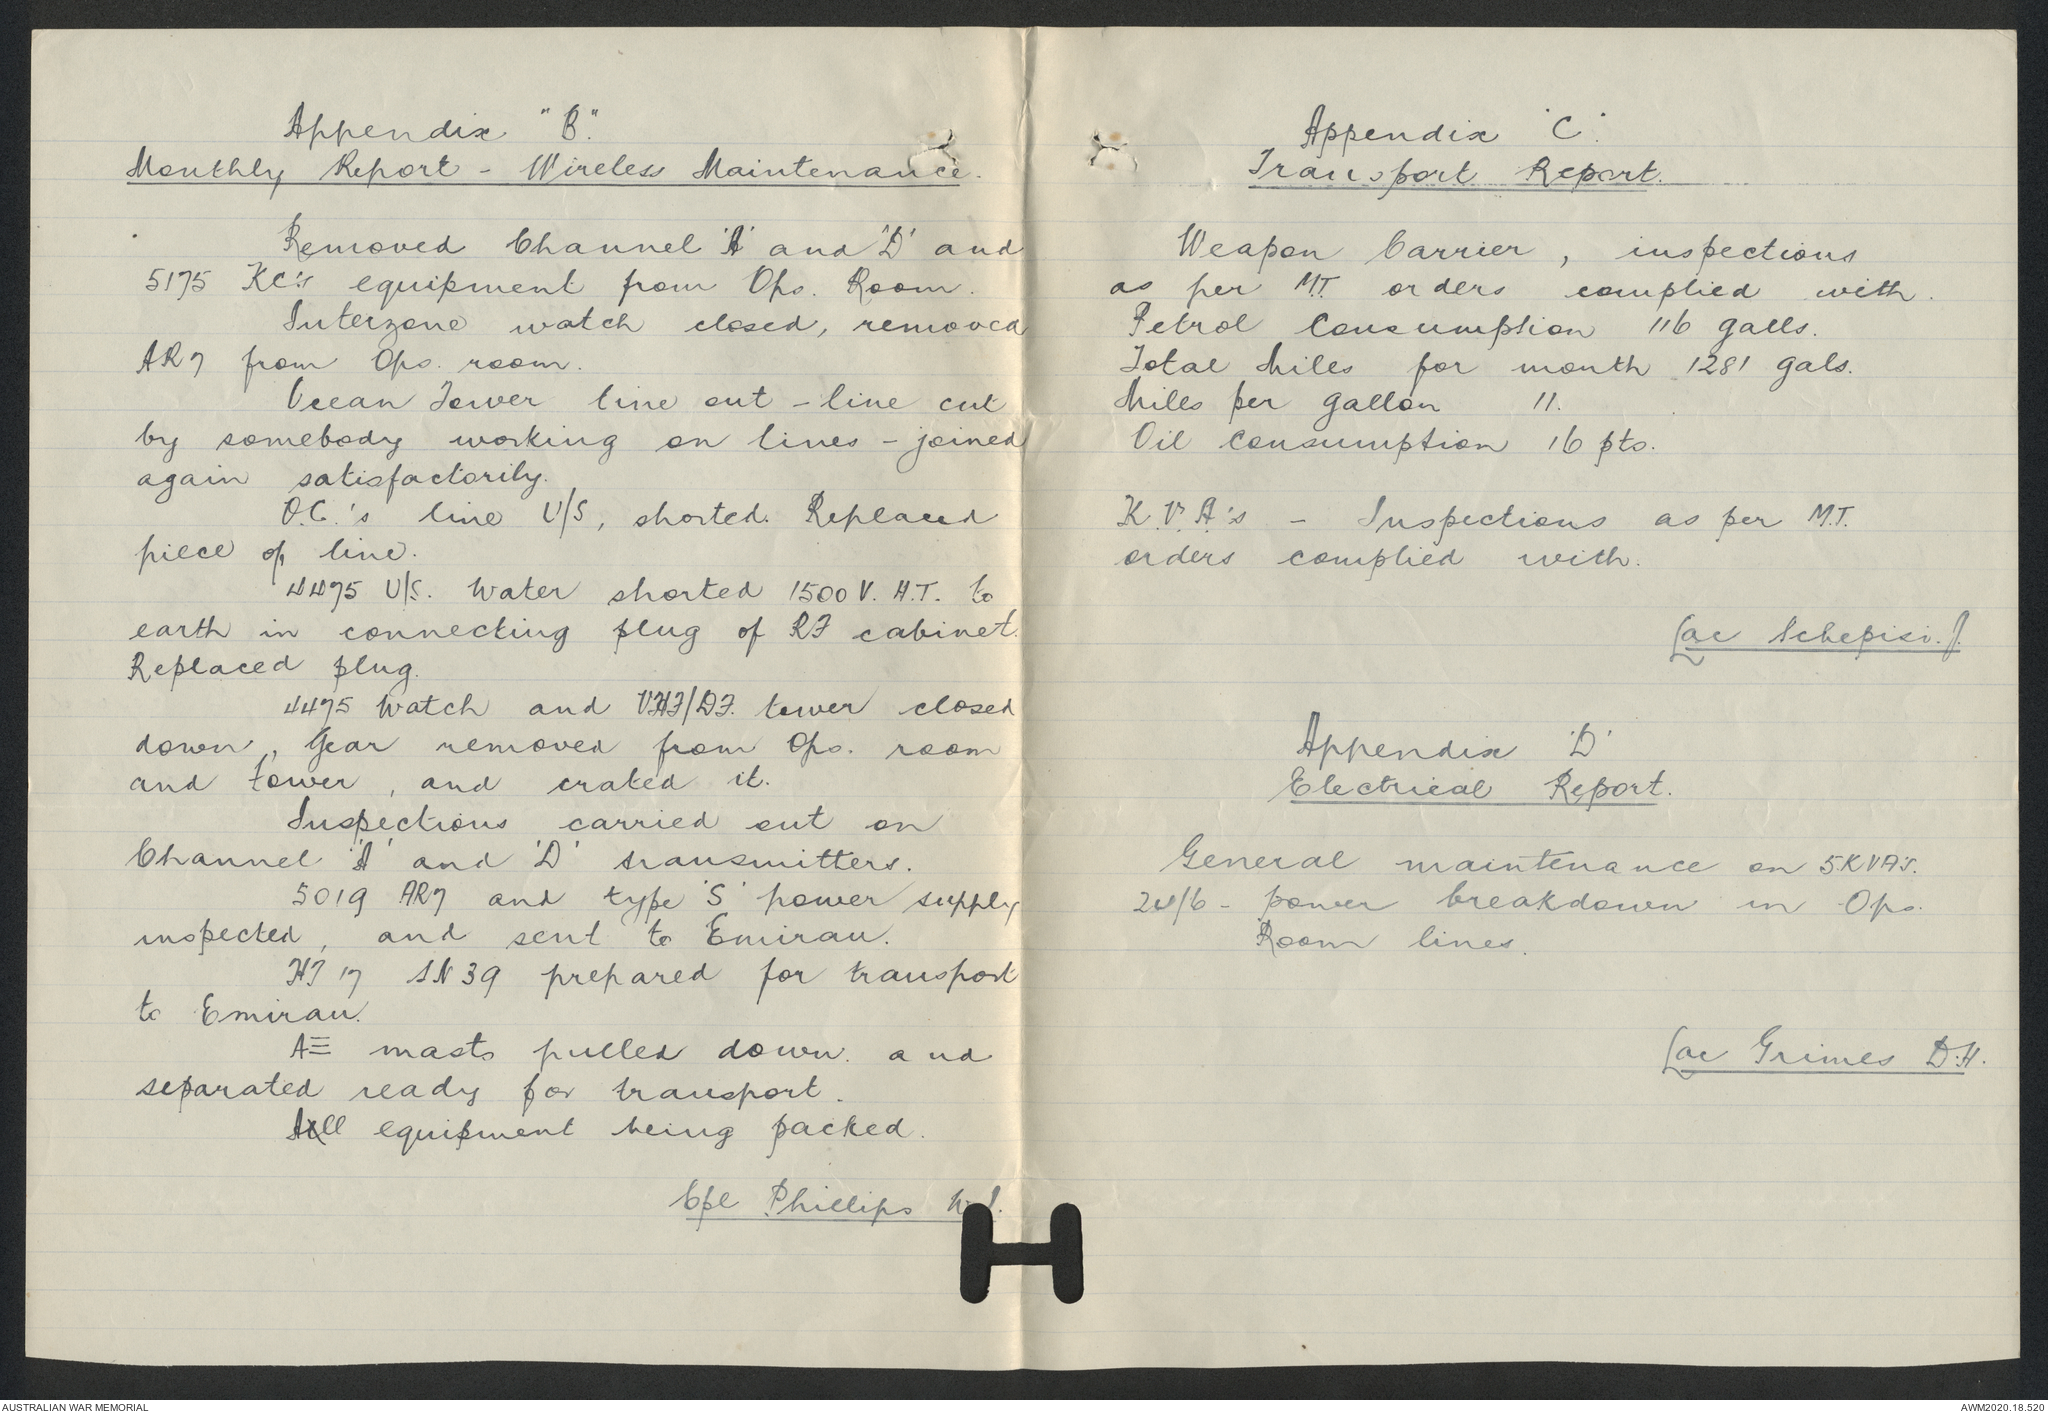 Appendix "B".
Monthly Report - Wireless Maintenance.
Removed Channel 'A' and 'D' and
5175 KC's equipment from Ops. Room.
Interzone watch closed, removed
AR7 from Ops. room.
Ocean Tower line out - line cut
by somebody working on lines - joined
again satisfactorily.
O.C.'s line U/S, shorted. Replaced
piece of line.
4475 U/S. Water shorted 1500 V. H.T. to
earth in connecting plug of RF cabinet.
Replaced plug.
4475 Watch and VHF/DF. tower closed
down, Gear removed from Ops. room
and tower, and crated it.
Inspections carried out on
Channel 'A' and 'D' transmitters.
5019 AR7 and type 'S' power supply
inspected, and sent to Emirau.
SN39 prepared for transport
to Emirau.
masts pulled down. and
separated ready for transport.
All equipment being packed.
Cpl Phillips
Appendix 'C'.
Transport Report.
Weapon Carrier, inspections
as per M.T. orders complied with.
Petrol Consumption 116 galls.
Total Miles for month 1281 gals.
Miles per gallon 11.
Oil Consumption 16 pts.
K.V.A's - Inspections as per M.T.
orders complied with.
Lac Schepisi. J.
Appendix 'D'
Electrical Report.
General maintenance on 5KVA's.
24/6 - power breakdown in Ops.
Room lines.
Lac Grimes D.H.
AUSTRALIAN WAR MEMORIAL
AWM2020.18.520